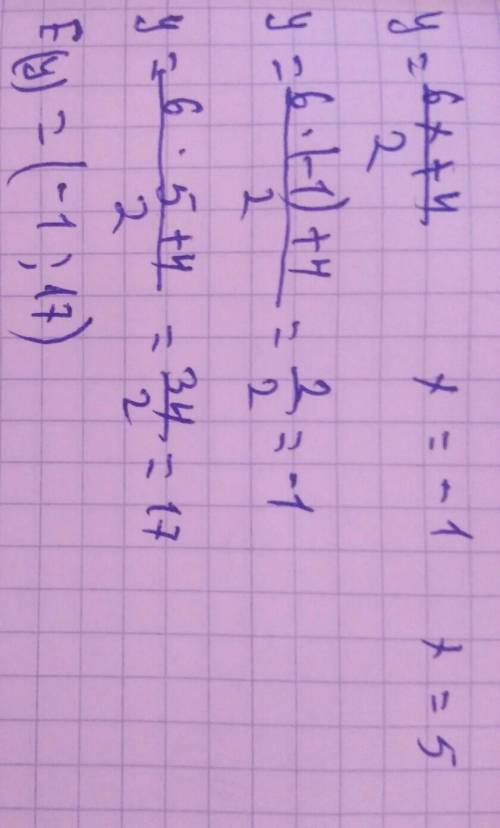 y = (6x + 4)/2    x = -1    x = 5
y = (6 · (-1) + 4)/2 = 2/2 = -1
y = (6 · 5 + 4)/2 = 34/2 = 17
E(y) = (-1; 17)